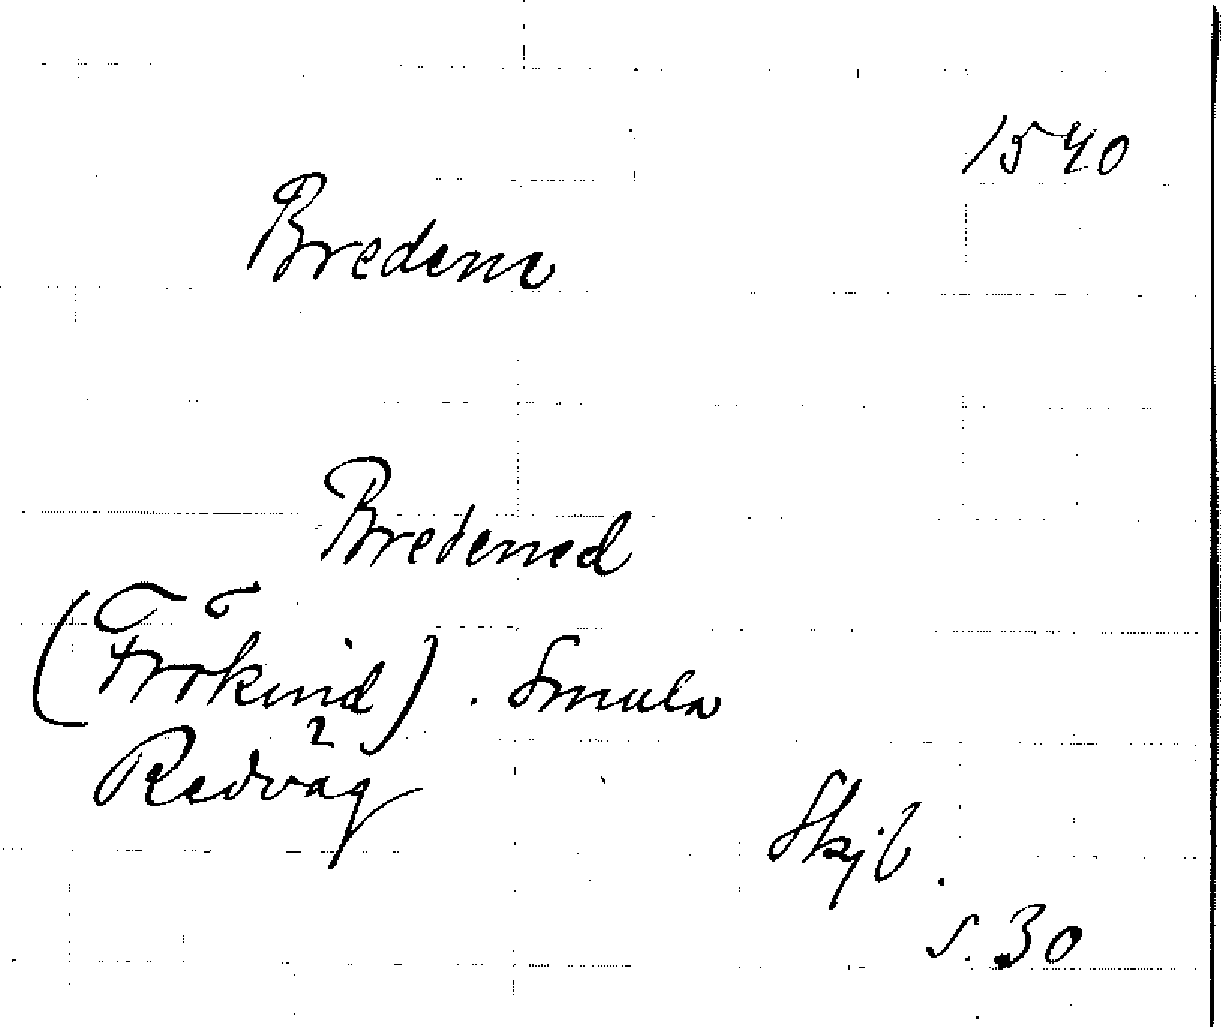 1540
Bredene
Bredened
(Frökind). Smula
Redväg
Skjb.
s. 30